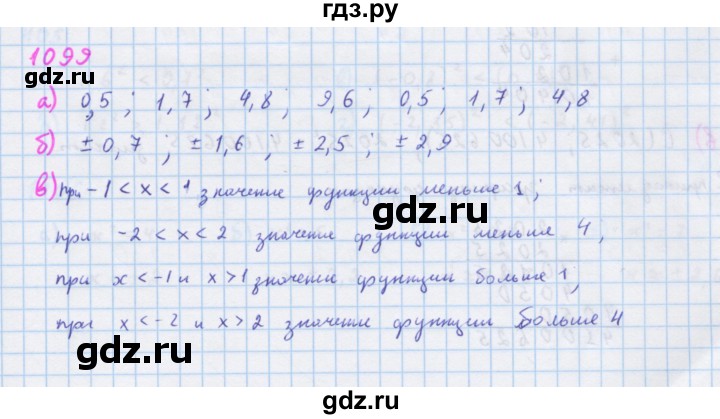 гдз.ру
1099
а) 0,5 ; 1,7 ; 4,8 ; 9,6 ; 0,5 ; 1,7 ; 4,8
б) ± 0,7 ; ± 1,6 ; ± 2,5 ; ± 2,9
в) при -1 < x < 1 значение функции меньше 1 ;
при -2 < x < 2 значение функции меньше 4 ,
при x < -1 и x > 1 значение функции больше 1 ;
при x < -2 и x > 2 значение функции больше 4
гдз.ру
гдз.ру